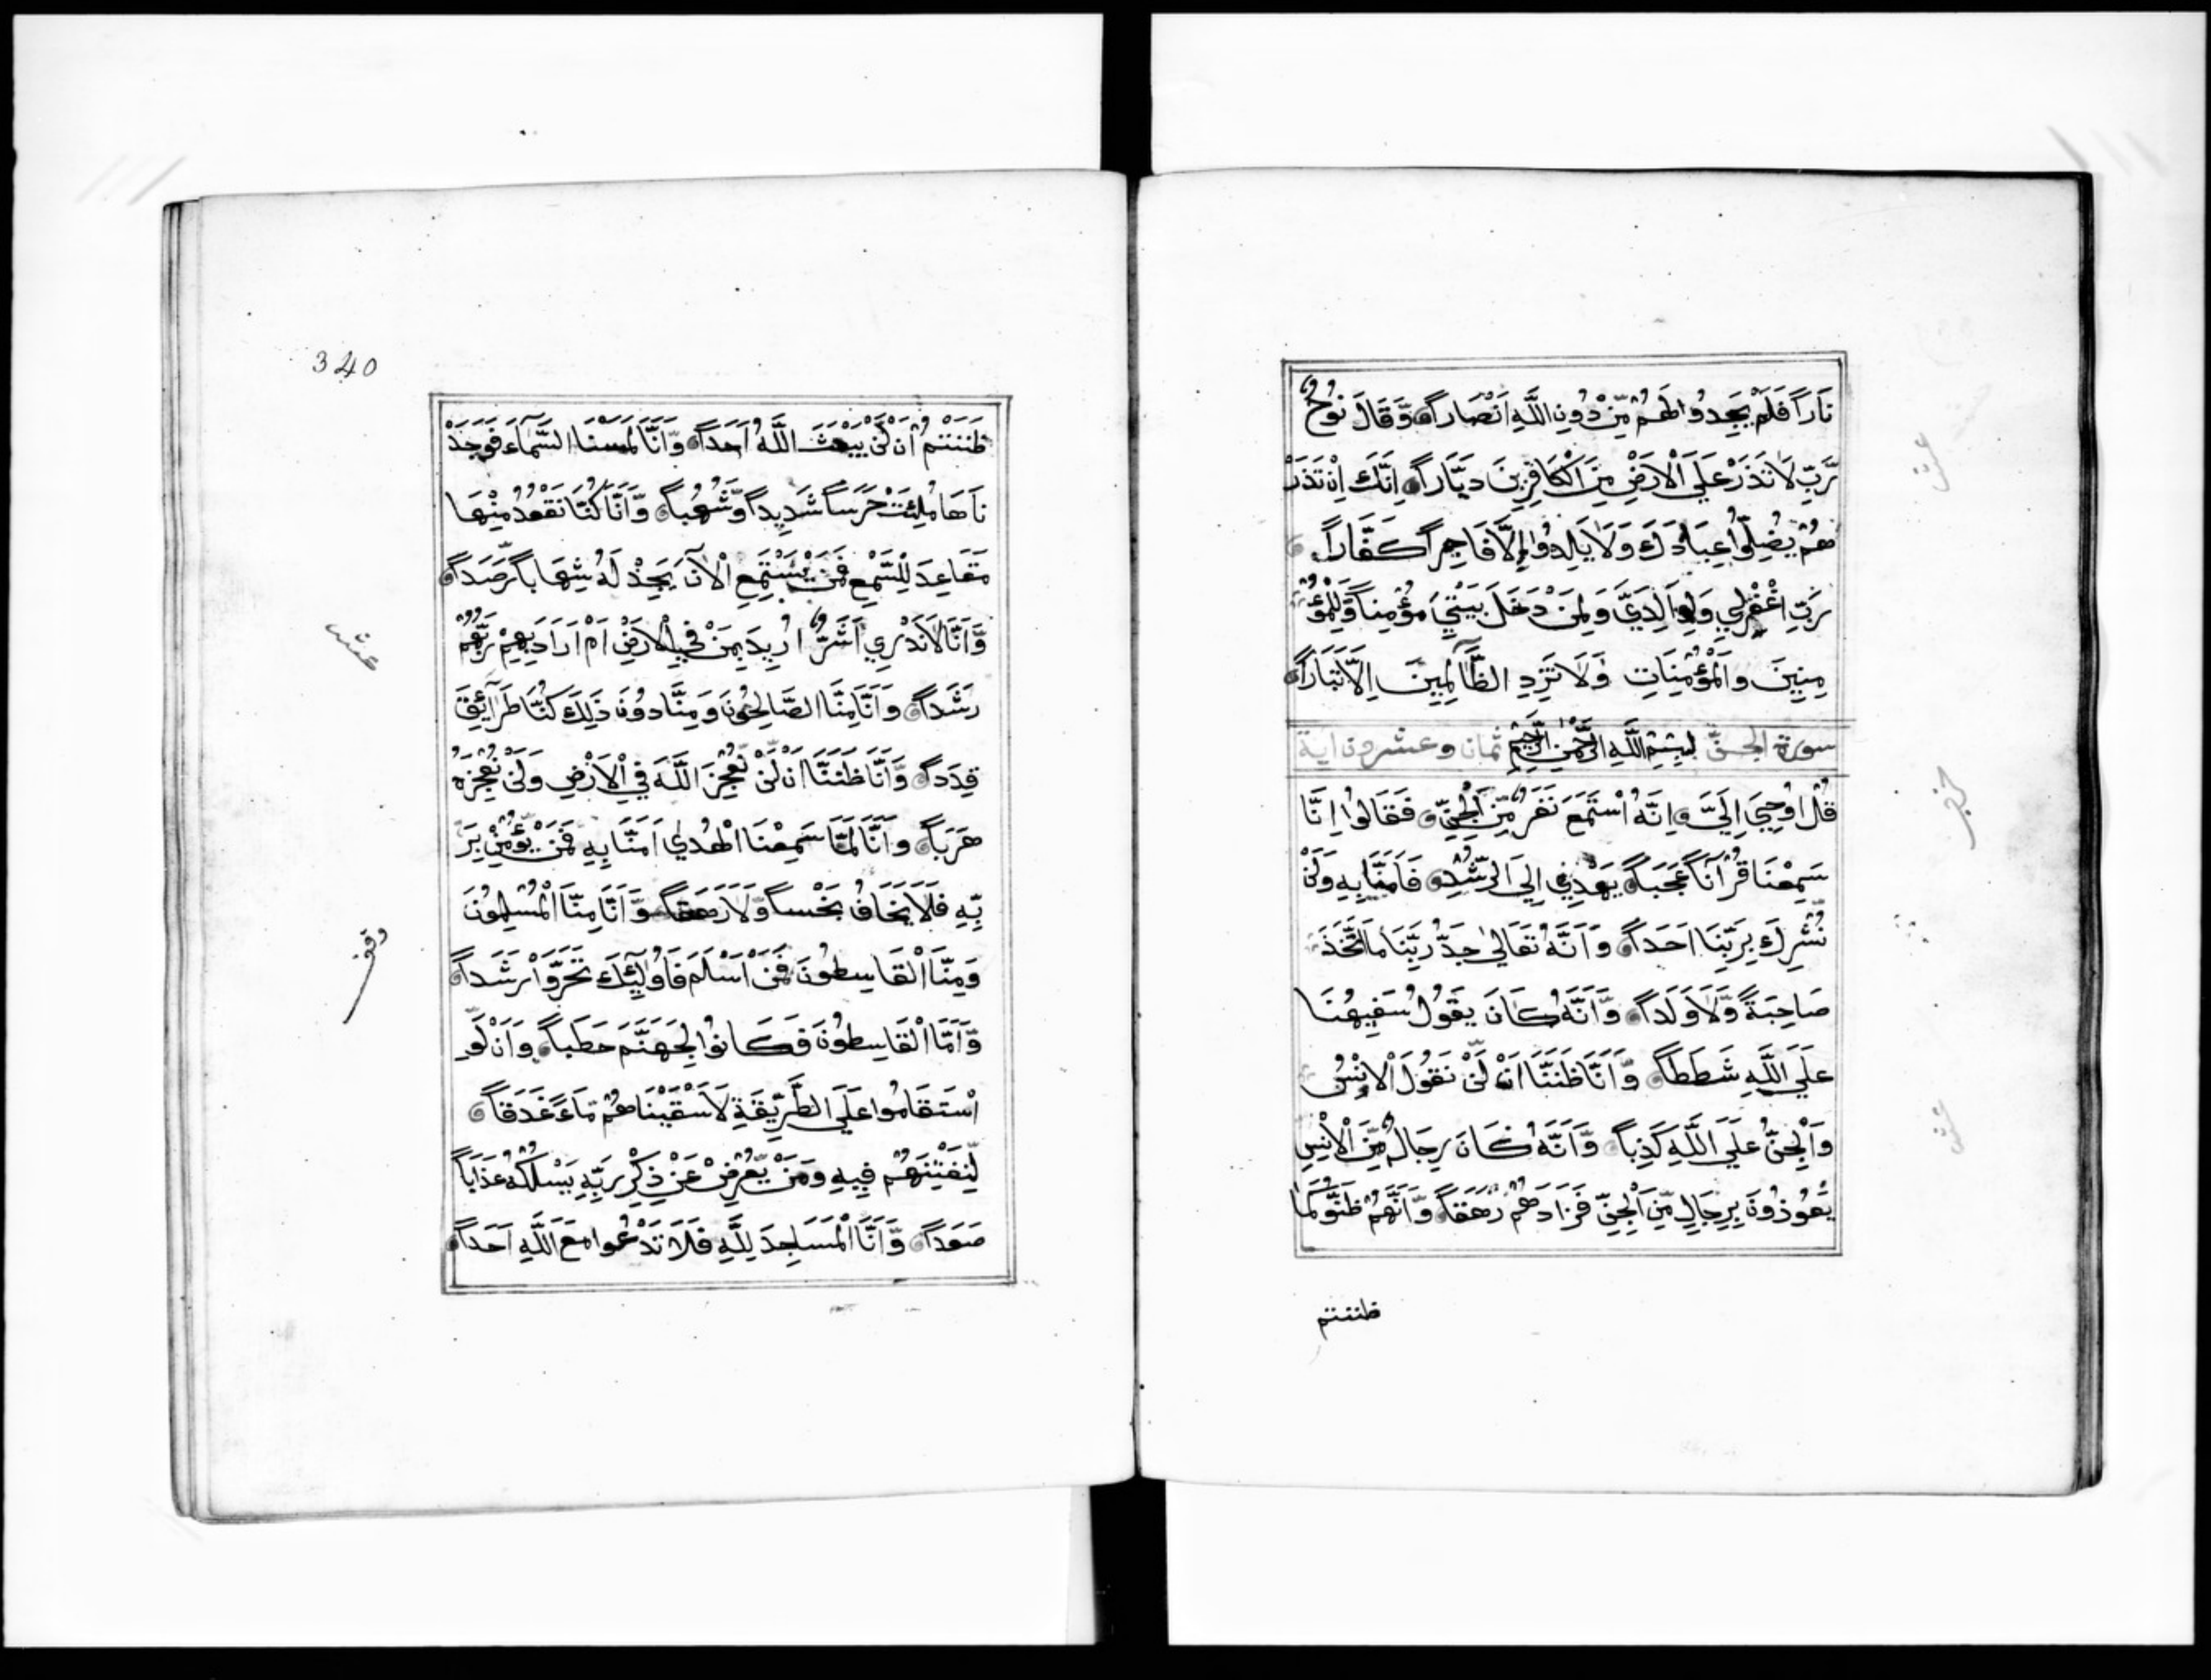 نَاراً فَلَمْ يَجِدُوا لَهُمْ مِّنْ دُونِ اللَّهِ اَنْصَاراً وَّقَالَ نُوحٌ
رَّبِّ لَا تَذَرْ عَلَى الْاَرْضِ مِنَ الْكَافِرِينَ دَيَّاراً اِنَّكَ اِنْ تَذَرْ
هُمْ يُضِلُّوا عِبَادَكَ وَلَا يَلِدُوا اِلَّا فَاجِراً كَفَّاراً
رَبِّ اغْفِرْلِي وَلِوَالِدَيَّ وَلِمَنْ دَخَلَ بَيْتِيَ مُؤْمِناً وَّلِلْمُؤْ
مِنِينَ وَالْمُؤْمِنَاتِ وَلَا تَزِدِ الظَّالِمِينَ اِلَّا تَبَاراً
سورة الجن بِسْمِ اللَّهِ الرَّحْمٰنِ الرَّحِيمِ ثمان وعشرون اية
قُلْ اُوحِيَ اِلَيَّ اِنَّهُ اسْتَمَعَ نَفَرٌ مِّنَ الْجِنِّ فَقَالُوا اِنَّا
سَمِعْنَا قُرْآنًا عَجَباً يَهْدِي اِلَى الرُّشْدِ فَآمَنَّا بِهِ وَلَنْ
نُشْرِكَ بِرَبِّنَا اَحَداً وَاَنَّهُ تَعَالٰى جَدُّ رَبِّنَا مَا اتَّخَذَ
صَاحِبَةً وَّلَا وَلَداً وَّاَنَّهُ كَانَ يَقُولُ سَفِيهُنَا
عَلَى اللَّهِ شَطَطاً وَّاَنَّا ظَنَنَّا اَنْ لَّنْ تَقُولَ الْاِنْسُ
وَالْجِنُّ عَلَى اللَّهِ كَذِباً وَّاَنَّهُ كَانَ رِجَالٌ مِّنَ الْاِنْسِ
يَعُوذُونَ بِرِجَالٍ مِّنَ الْجِنِّ فَزَادُهُمْ رَهَقاً وَّاَنَّهُمْ ظَنُّوا كَمَا
ظننتم
340
ظَنَنْتُمْ اَنْ لَّنْ يَبْعَثَ اللَّهُ اَحَداً وَّاَنَّا لَمَسْنَا السَّمَآءَ فَوَجَدْ
نَاهَا مُلِئَتْ حَرَسًا شَدِيداً وَّشُهُباً وَّاَنَّا كُنَّا نَقْعُدُ مِنْهَا
مَقَاعِدَ لِلسَّمْعِ فَمَنْ يَسْتَمِعِ الْآنَ يَجِدْ لَهُ شِهَاباً رَّصَداً
وَّاَنَّا لَا نَدْرِي اَشَرٌّ اُرِيدَ بِمَنْ فِي الْاَرْضِ اَمْ اَرَادَ بِهِمْ رَبُّهُمْ
رَشَداً وَاَنَّا مِنَّا الصَّالِحُونَ وَمِنَّا دُونَ ذَلِكَ كُنَّا طَرَآئِقَ
قِدَداً وَّاَنَّا ظَنَنَّا اَنْ لَنْ نُّعْجِزَ اللَّهَ فِي الْاَرْضِ وَلَنْ نُعْجِزَهُ
هَرَباً وَاَنَّا لَمَّا سَمِعْنَا الْهُدٰى اَمَنَّا بِهِ فَمَنْ يُّؤْمِنْ بِرَ
بِّهِ فَلَا يَخَافُ بَخْساً وَّلَا رَهَقاً وَّاَنَّا مِنَّا الْمُسْلِمُونَ
وَمِنَّا الْقَاسِطُونَ فَمَنْ اَسْلَمَ فَاُولٰٓئِكَ تَحَرَّوْا رَشَداً
وَّاَمَّا الْقَاسِطُونَ فَكَانُوا لِجَهَنَّمَ حَطَباً وَاَنْ لَّوِ
اسْتَقَامُوا عَلَى الطَّرِيقَةِ لَاَسْقَيْنَاهُمْ مَّاءً غَدَقاً
لِّنَفْتِنَهُمْ فِيهِ وَمَنْ يُّعْرِضْ عَنْ ذِكْرِ رَبِّهِ يَسْلُكْهُ عَذَاباً
صَعَداً وَّاَنَّ الْمَسَاجِدَ لِلَّهِ فَلَا تَدْعُوا مَعَ اللَّهِ اَحَداً
عشر
وقف